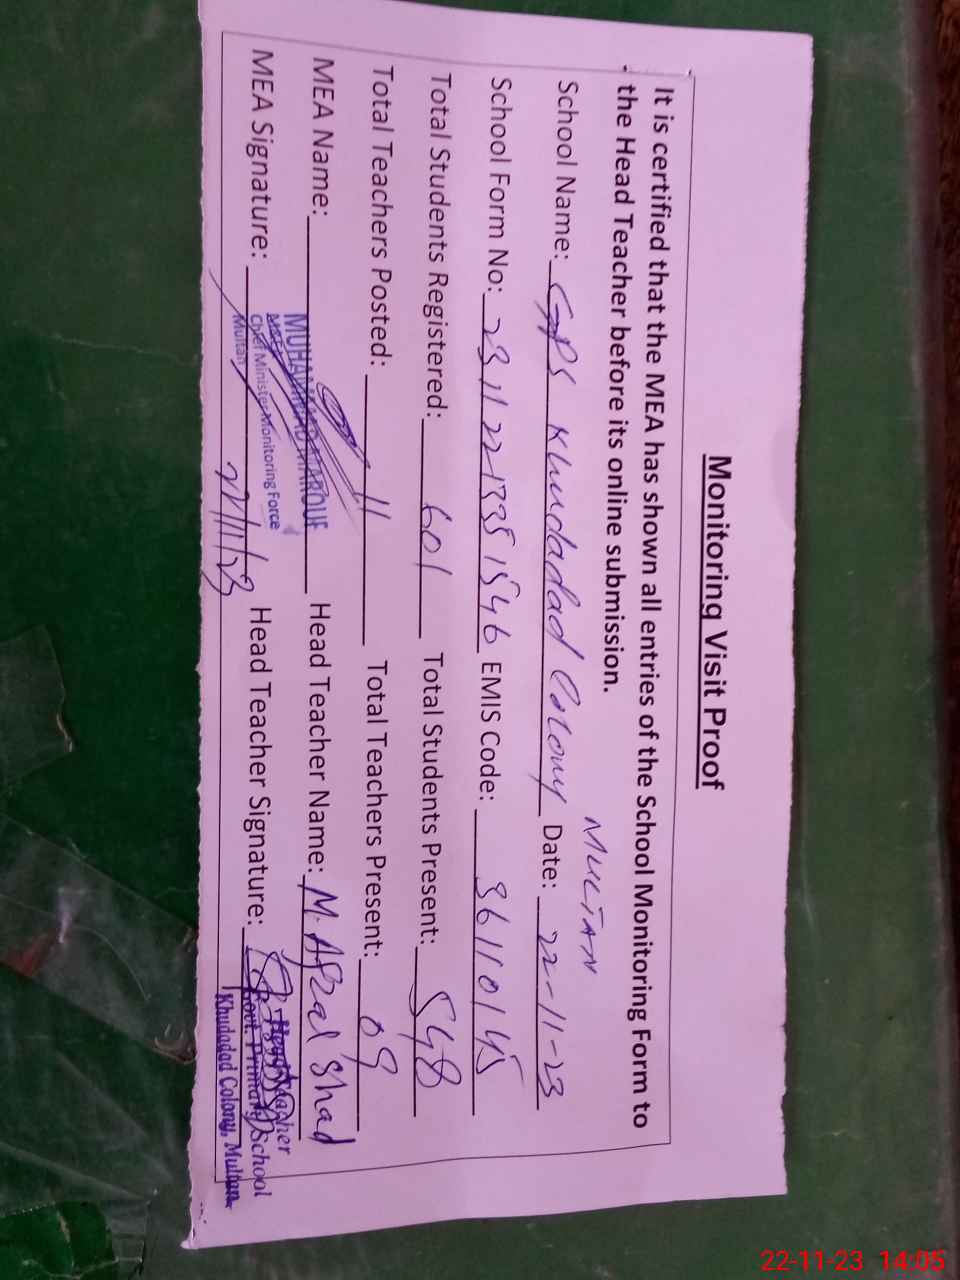 Monitoring Visit Proof
It is certified that the MEA has shown all entries of the School Monitoring Form to
the Head Teacher before its online submission.
MULTAN
School Name: GPS Khudadad Colony Date: 22-11-23
School Form No: EMIS Code: 36110145
Total Students Registered: 601 Total Students Present: 548
Total Teachers Posted: 11 Total Teachers Present: 09
MEA Name: Head Teacher Name: M. Afzal Shad
MUHAMMAD MAROUF
MEA Signature: 22/11/23 Head Teacher Signature:
Chief Minister Monitoring Force
Multan
Head Teacher
Govt. Primary School
Khudadad Colony, Multan
22-11-23 14:05